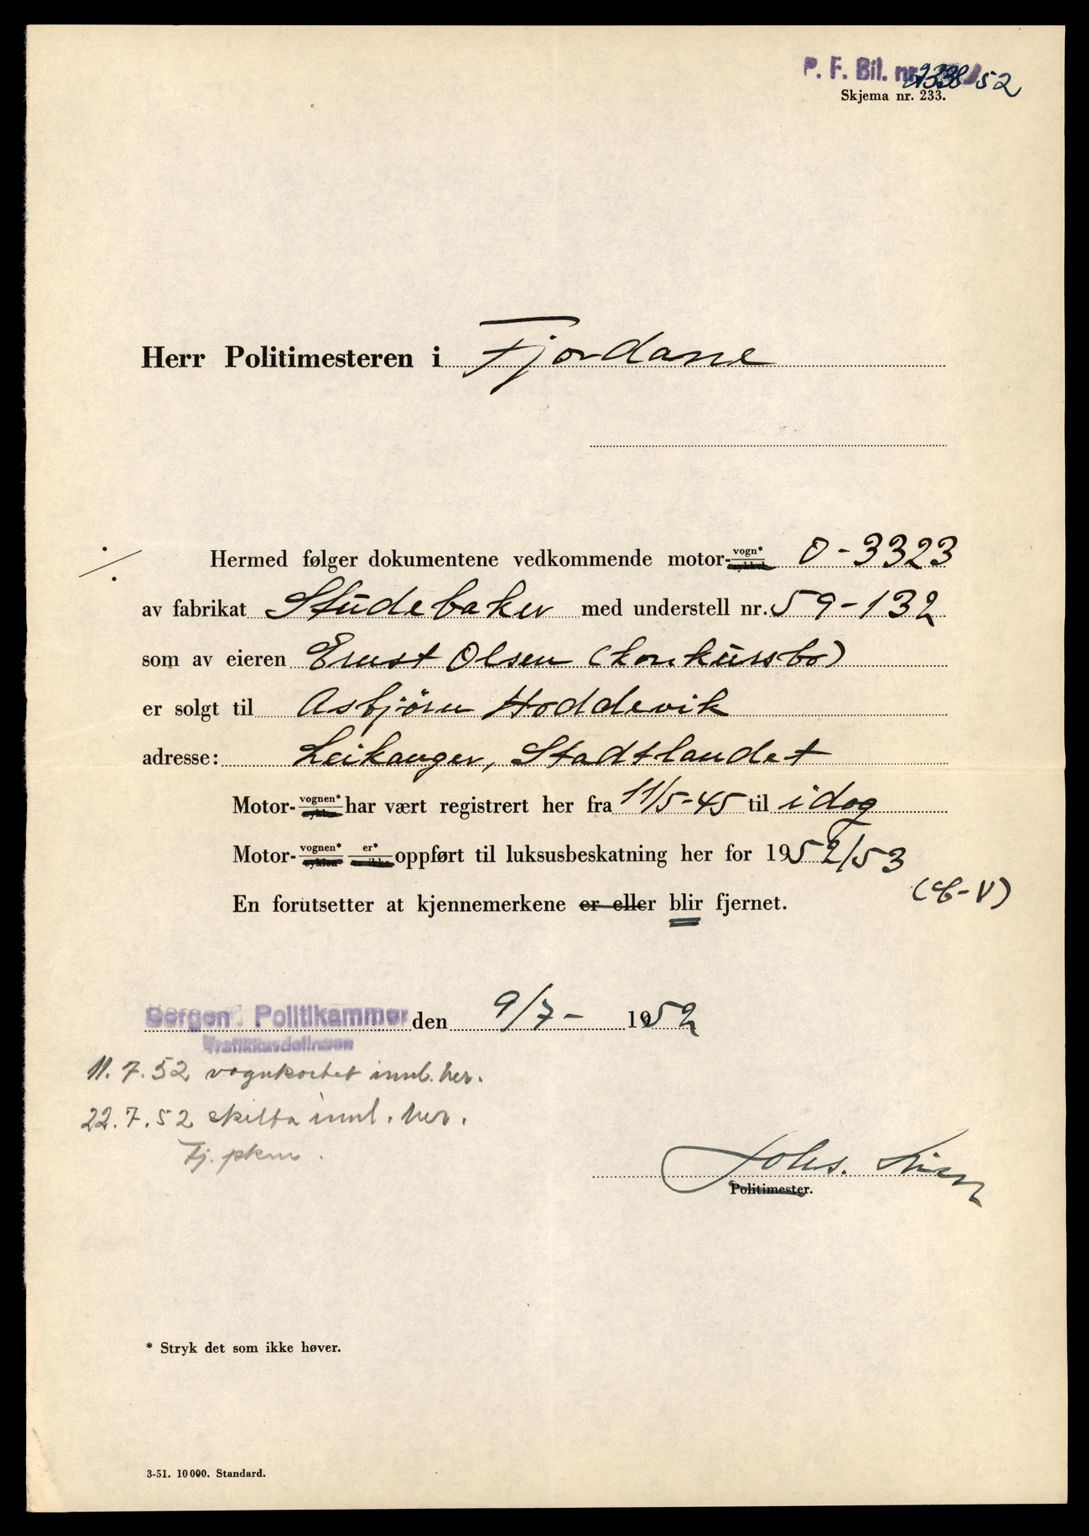 P. F. Bil. nr. 2338/52
Skjema nr. 233.
Herr Politimesteren i Fjordane
Hermed følger dokumentene vedkommende motor-vogn* sykkel O-3323
av fabrikat Studebaker med understell nr. 59-132
som av eieren Ernst Olsen (konkursbo)
er solgt til Asbjørn Hoddevik
adresse: Leikanger, Stadtlandet
Motor-vognen* sykkelen har vært registrert her fra 11/5-45 til idag
Motor-vognen* sykkelen er* er ikke oppført til luksusbeskatning her for 1952/53
(C-V)
En forutsetter at kjennemerkene er eller blir fjernet.
Bergen Politikammer den 9/7- 1952
Trafikkavdelingen
11.7.52 vognkortet innl. her.
22.7.52 skilta innl. her.
Fj. pkm.
Johs.
Politimester.
* Stryk det som ikke høver.
3-51. 10000. Standard.